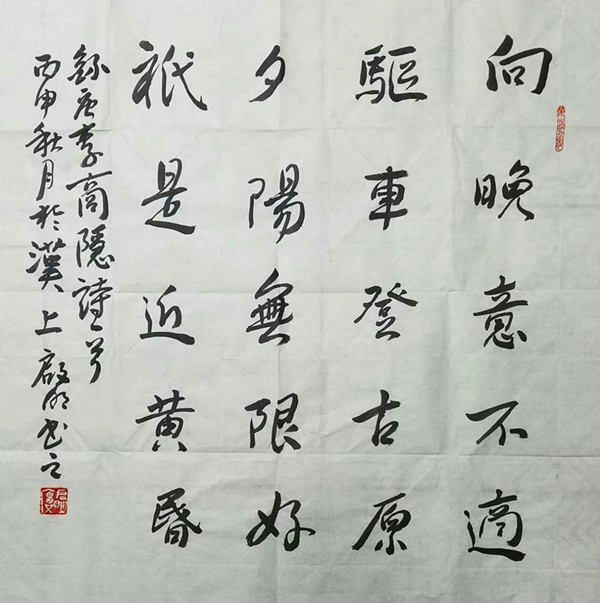 向晚意不適
驅車登古原
夕陽無限好
祇是近黄昏
錄唐李商隱詩一首
丙申秋月於漢上啟明書之